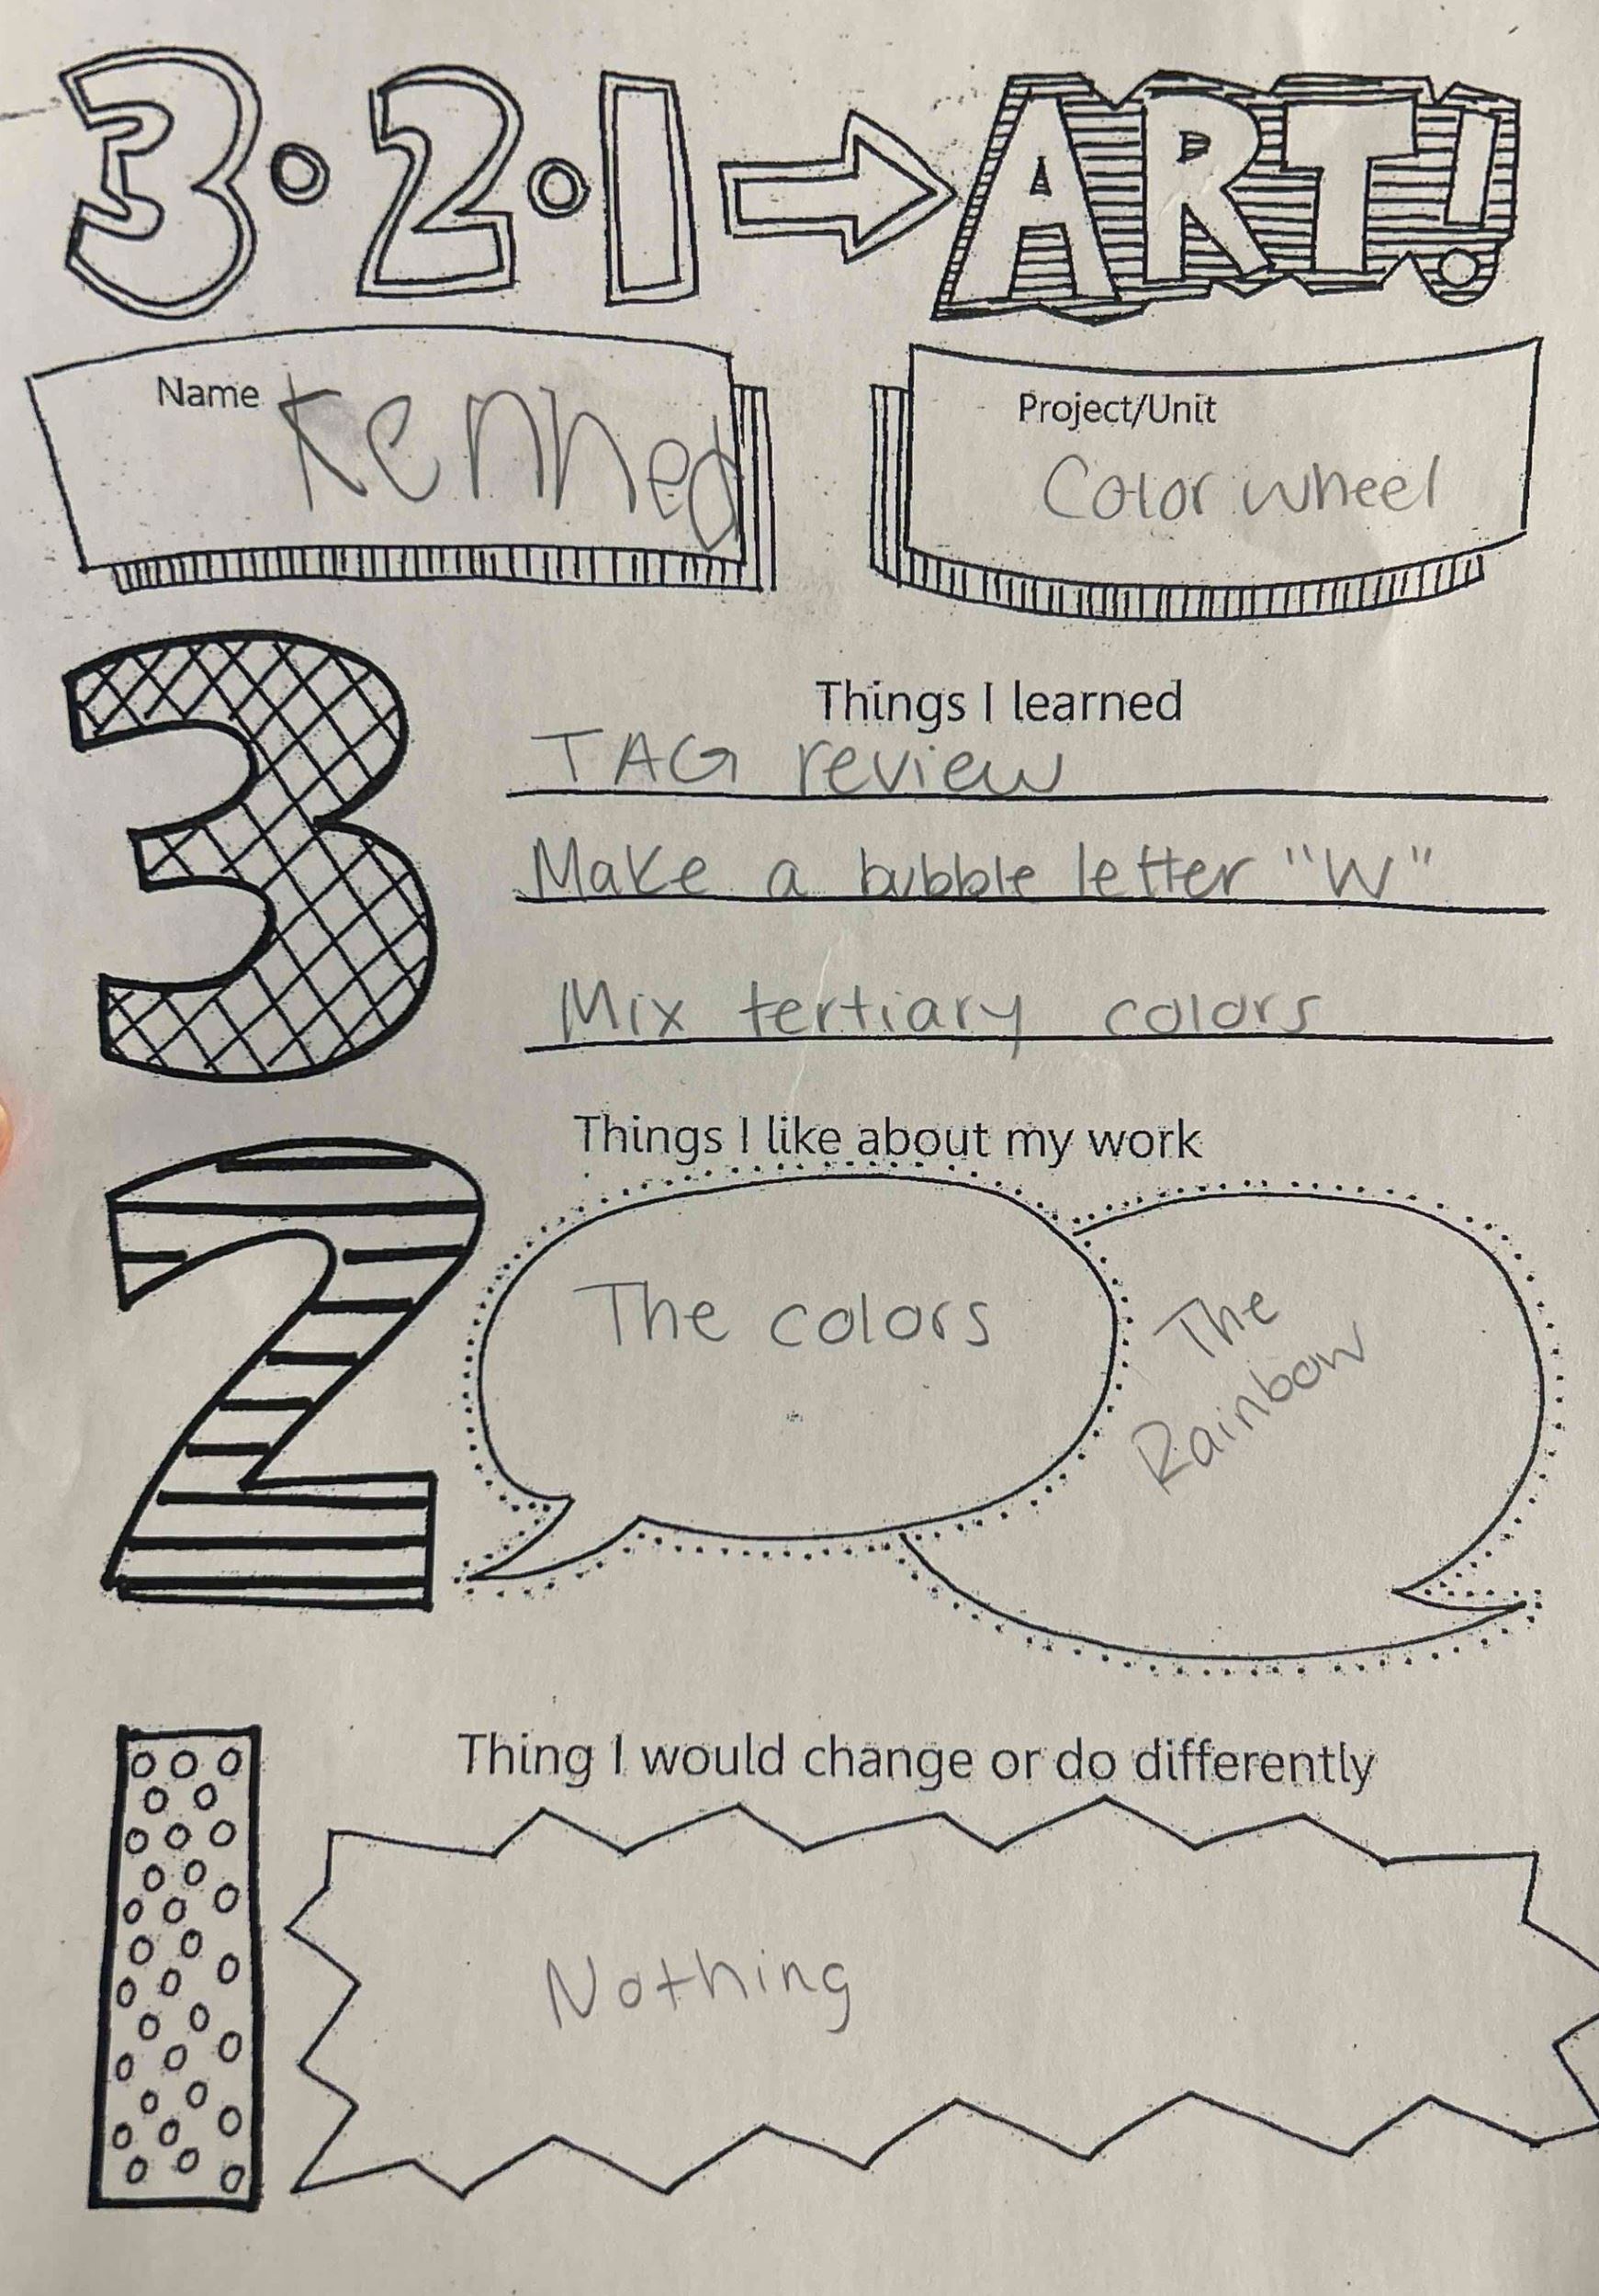 3.2.1 ART!
Name Kenned
Project/Unit
Color wheel
3
Things I learned
TAG review
Make a bubble letter "W"
Mix tertiary colors
2
Things I like about my work
The colors
The
Rainbow
1
Thing I would change or do differently
Nothing